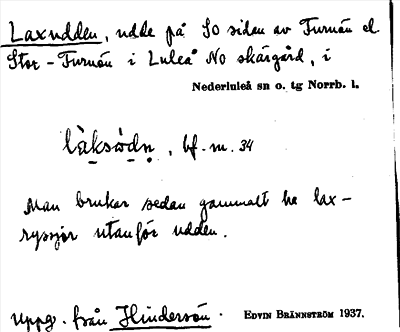 Laxudden, udde på SO sidan av Furuön el
Stor-Furuön i Luleå NO skärgård, i
Nederluleå sn o. tg Norrb. l.
làksòdn, bf. m. 34
Man brukar sedan gammalt ha lax-
ryssjor utanför udden.
Uppg. från Hindersön. EDVIN BRÄNNSTRÖM 1937.